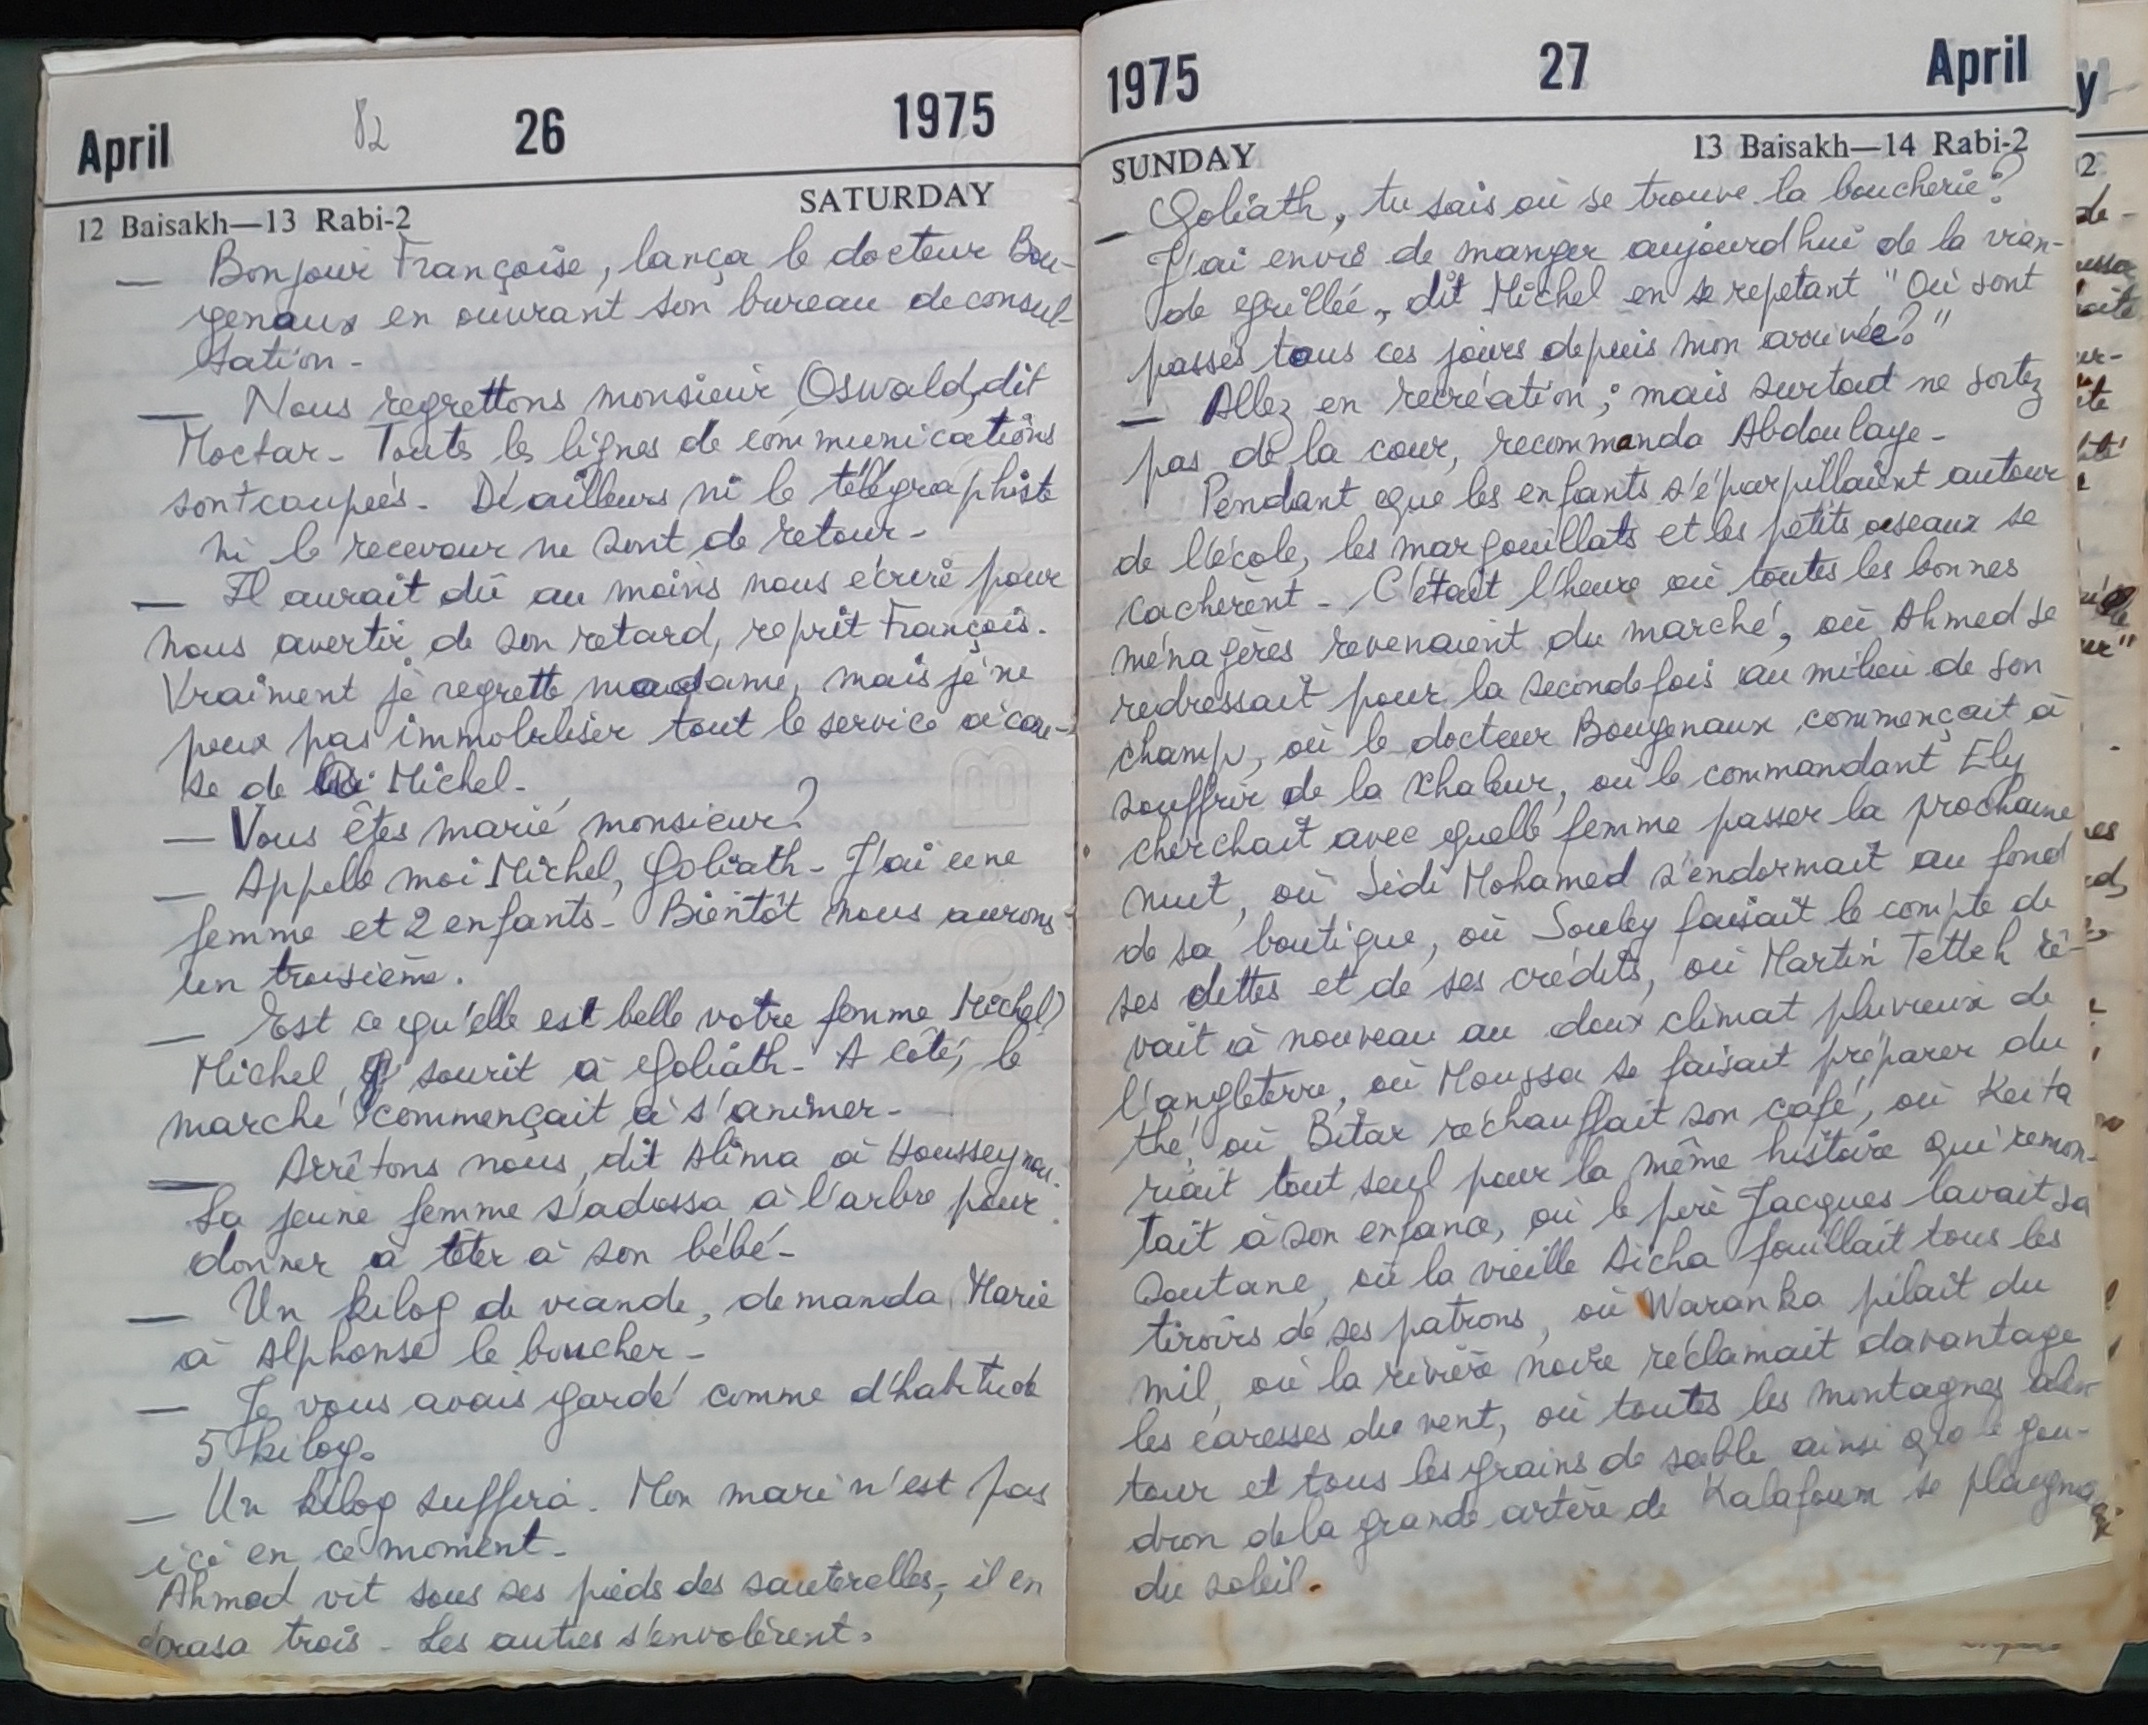 April 82 26 1975
SATURDAY
12 Baisakh—13 Rabi-2
— Bonjour Françoise, lança le docteur Bou-
genaux en ouvrant son bureau de consul-
tation-
— Nous regrettons monsieur Oswald, dit
Moctar- Toutes les lignes de communications
sont coupées. D'ailleurs ni le télégraphiste
ni le receveur ne sont de retour-
— Il aurait dû au moins nous écrire pour
nous avertir de son retard, reprit François.
Vraiment je regrette madame, mais je ne
peux pas immobiliser tout le service à cau-
se de Michel-
— Vous êtes marié monsieur?
— Appelle moi Michel, Goliath- J'ai une
femme et 2 enfants- Bientôt nous aurons
un troisième.
— Est ce qu'elle est belle votre femme Michel?
Michel sourit à Goliath- A côté, le
marché commençait à s'animer-
— Arrêtons nous, dit Alima à Housseynou.
La jeune femme s'adossa à l'arbre pour
donner à têter à son bébé-
— Un kilog de viande, demanda Marie
à Alphonse le boucher-
— Je vous avais gardé comme d'habitude
5 kilog.
— Un kilog suffira. Mon mari n'est pas
ici en ce moment-
Ahmed vit sous ses pieds des sauterelles, il en
écrasa trois- Les autres s'envolèrent.
1975 27 April
SUNDAY 13 Baisakh—14 Rabi-2
— Goliath, tu sais où se trouve la boucherie?
J'ai envie de manger aujourd'hui de la vian-
de grillée, dit Michel en se repetant "Où sont
passés tous ces jours depuis mon arrivée?"
— Allez en recréation; mais surtout ne sortez
pas de la cour, recommanda Abdoulaye-
Pendant que les enfants s'éparpillaient autour
de l'école, les margouillats et les petits oiseaux se
cachèrent- C'était l'heure où toutes les bonnes
ménagères revenaient du marché, où Ahmed se
redressait pour la seconde fois au milieu de son
champ, où le docteur Bougenaux commençait à
souffrir de la chaleur, où le commandant Ely
cherchait avec quelle femme passer la prochaine
nuit, où Sidi Mohamed s'endormait au fond
de sa boutique, où Souley faisait le compte de
ses dettes et de ses crédits, où Martin Tetteh rê-
vait à nouveau au doux climat pluvieux de
l'angleterre, où Moussa se faisait préparer du
thé, où Bitar réchauffait son café, où Keita
riait tout seul pour la même histoire qui remon-
tait à son enfance, où le père Jacques lavait sa
soutane, où la vieille Aicha fouillait tous les
tiroirs de ses patrons, où Waranka pilait du
mil, où la rivière noire réclamait davantage
les caresses du vent, où toutes les montagnes alen-
tour et tous les grains de sable ainsi que le gou-
dron de la grande artère de Kalafoum se plaignai
du soleil.